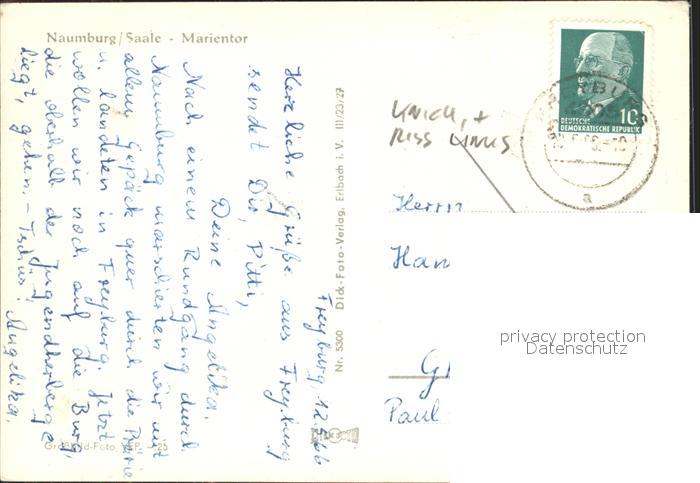 Naumburg/Saale - Marientor
Freyburg, 12.5.66
Herzliche Grüße aus Freyburg
sendet Dir, Pitti,
Deine Angelika.
Nach einem Rundgang durch
Naumburg marschierten wir mit
allem Gepäck quer durch die Prärie
u. landeten in Freyburg. Jetzt
wollen wir noch auf die Burg,
die oberhalb der Jugendherberge
liegt, gehen. - Tschüs! Angelika.
Nr. 5300 Dick-Foto-Verlag, Erlbach i. V. III/23/27
KNICK, +
RISS LINKS
10
DEUTSCHE
DEMOKRATISCHE REPUBLIK
a
Herrn
Han
Paul
privacy protection
Datenschutz